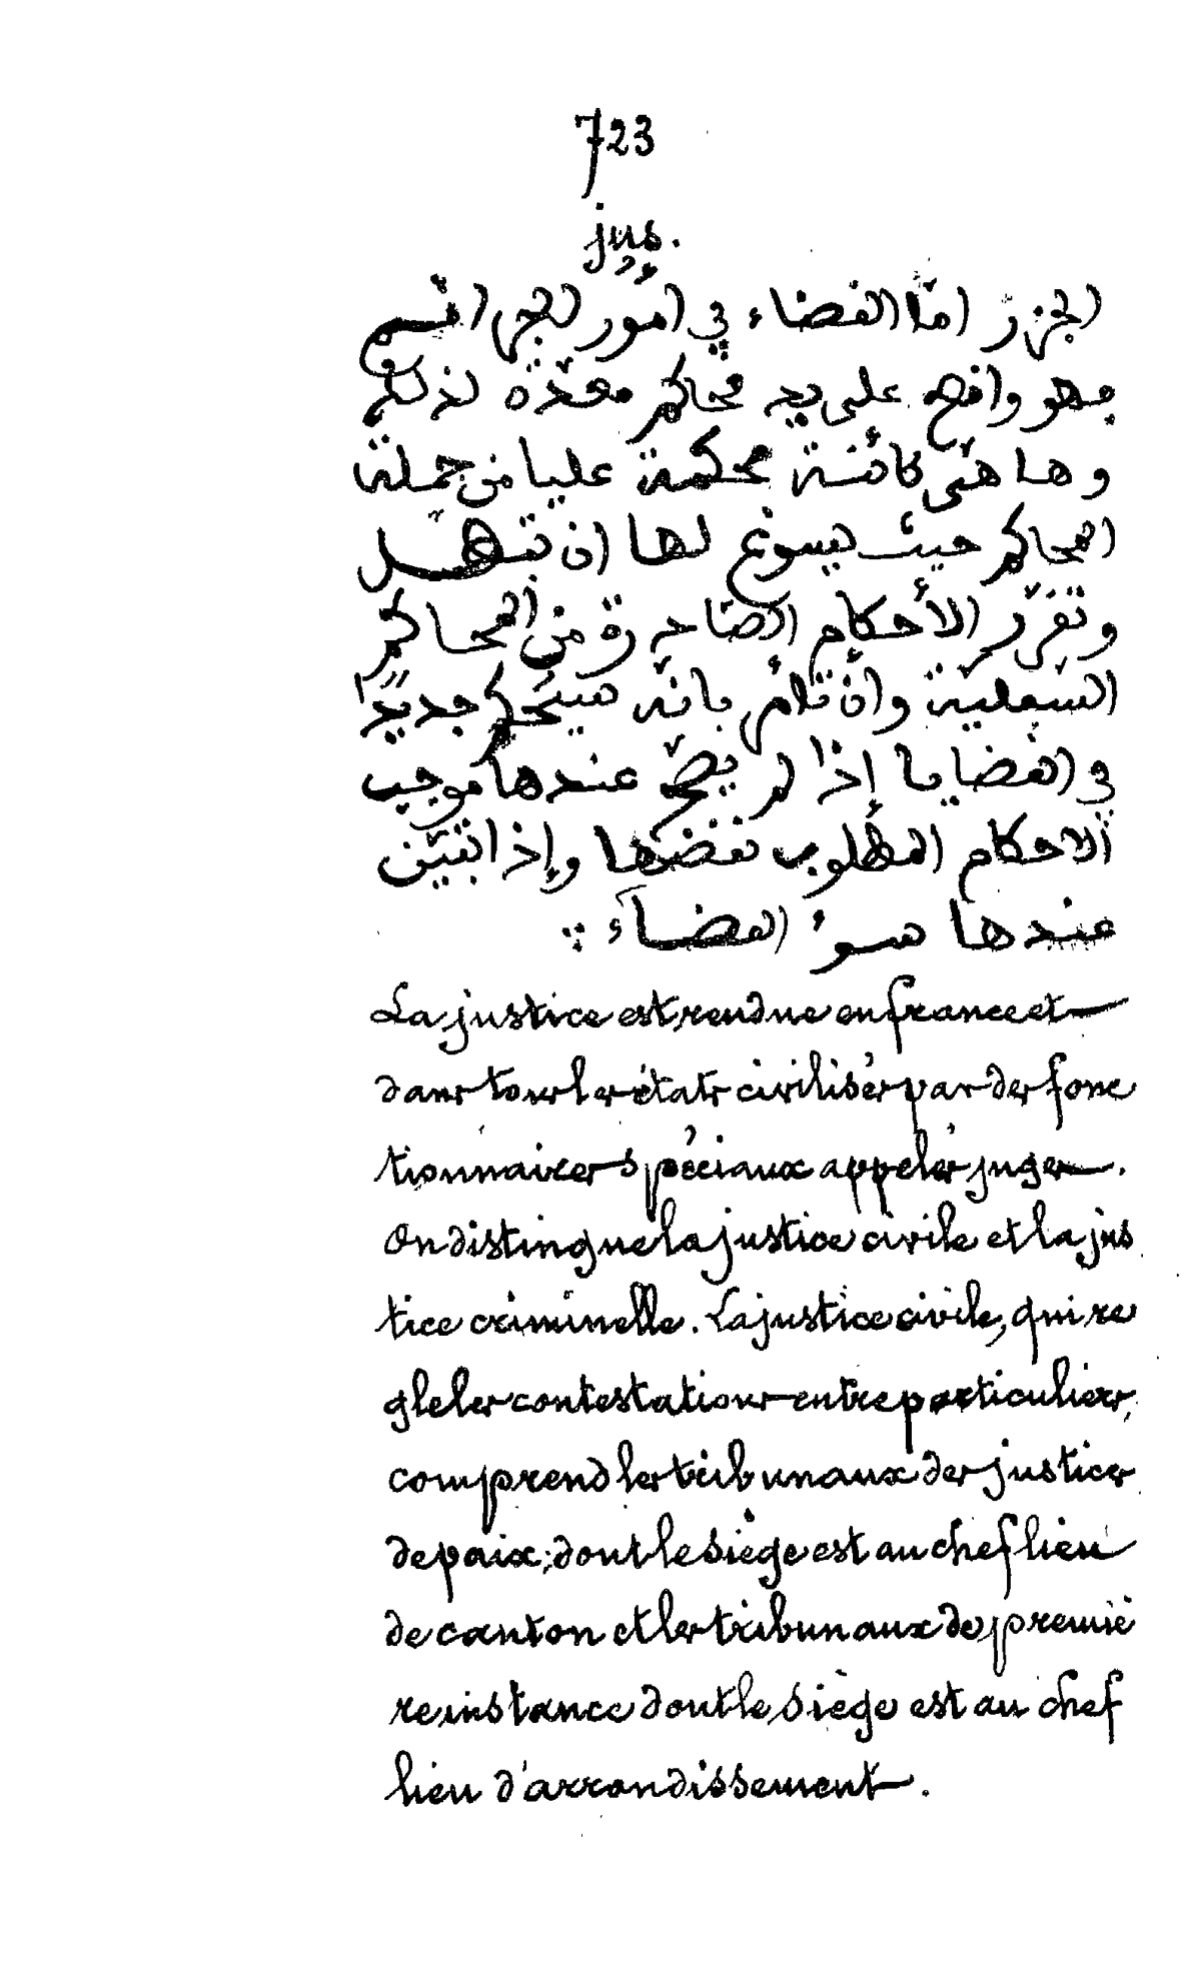 723
jus.
الجزر امّا القضاء في امور الجرائم
فهو واقع على يد محاكم معدّة لذلك
وها هي كائنة محكمة عليا من جملة
المحاكم حيث يسوغ لها ان تبطل
وتقرّر الأحكام الصادرة من المحاكم
السّفلية وأن تأمر بانّه سيحكم جديدًا
في القضايا إذا لم يصحّ عندها موجب
الاحكام المطلوب نقضها وإذا تبيّن
عندها سوء القضاء
La justice est rendue en france et
dans tous les états civilisés par des fonc
tionnaires spéciaux appelés juges.
On distingue la justice civile et la jus
tice criminelle. La justice civile, qui re
gle les contestations entre particuliers,
comprend les tribunaux des justices
de paix, dont le siège est au chef lieu
de canton et les tribunaux de premiè
re instance dont le siège est au chef
lieu d'arrondissement.